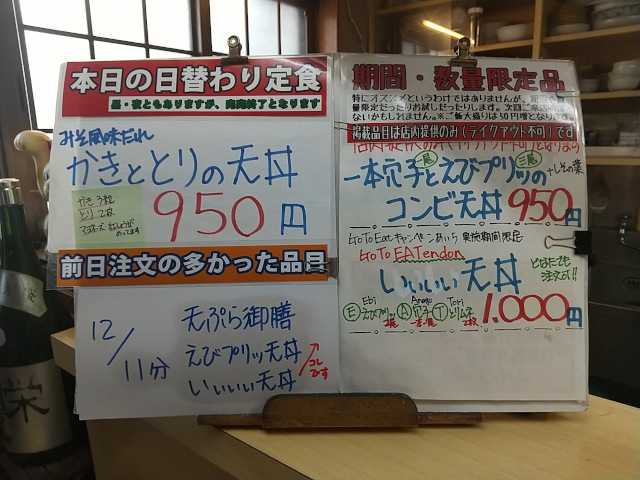 本日の日替わり定食
昼・夜ともありますが、完売終了となります
みそ風味だれ
かきととりの天丼
かき 3粒
とり 2枚
950円
前日注文の多かった品目
12/11分
天ぷら御膳
えびプリッ天丼
いいいい天丼
コレです
期間・数量限定品
特にオススメというわけではありませんが、
掲載品目は店内提供のみ(テイクアウト不可)です
一本穴子とえびプリッツの
+しその葉
コンビ天丼 950円
GoTo Eatキャンペーンあいち 実施期間限定
GoTo EATendon
いいいい天丼
どなたでも注文可!!
1.000円
Ebi
Anago
Tori
Eえびプリッ
A穴子
Tとりムネ
2枚
栄